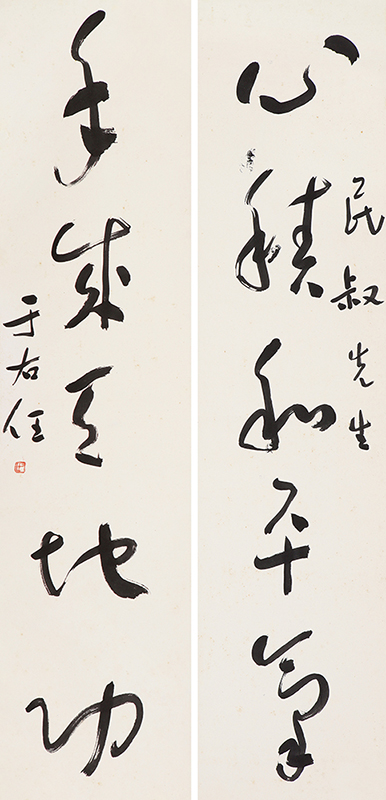 民叔先生
心積和平氣
手成天地功
于右任